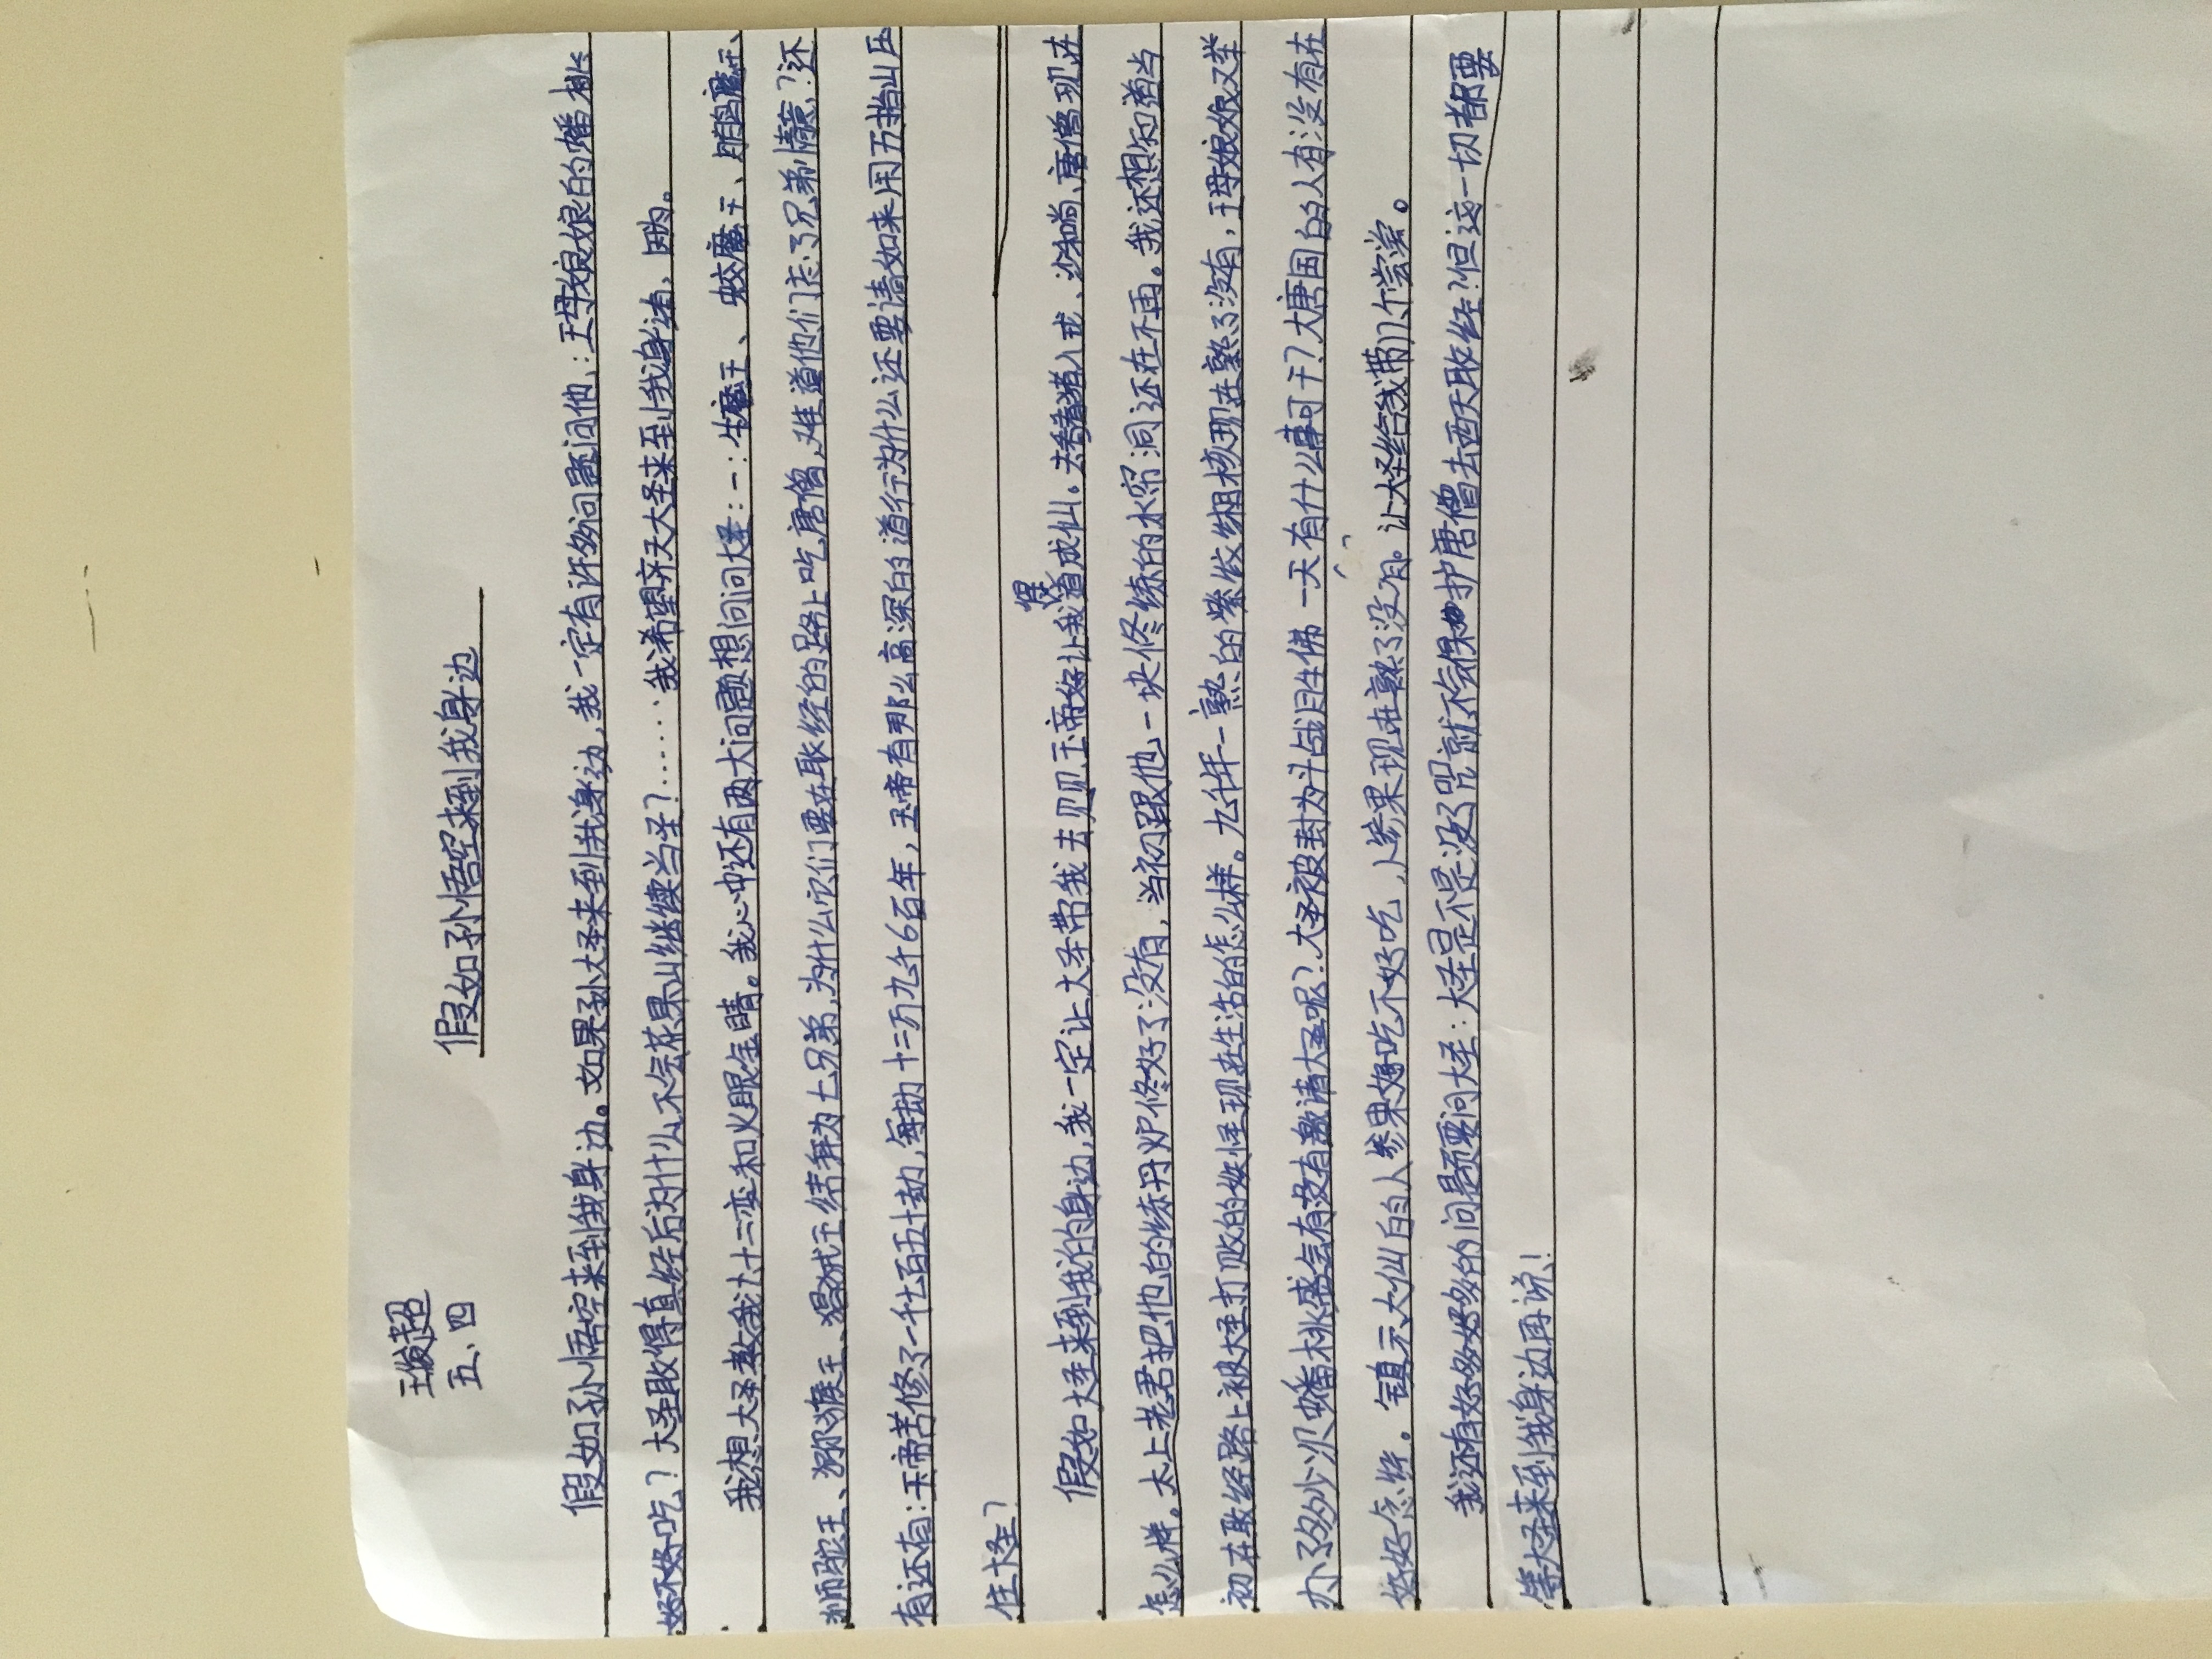 王俊超
五、四
假如孙悟空来到我身边
假如孙悟空来到我身边。如果孙大圣来到我身边，我一定有许多问题问他：王母娘娘的蟠桃
好不好吃？大圣取得真经后为什么不会花果山继续当圣？……我希望齐天大圣来到我身边，因为。
我想大圣教我七十二变和火眼金睛。我心中还有两大问题想问问大圣：一：牛魔王、蛟魔王、鹏魔王、
狮驼王、猕猴王、猲狨王结拜为七兄弟，为什么它们要在取经的路上吃唐僧，难道他们忘了兄弟情意？还
有还有：玉帝苦修了一千七百五十劫，每劫十二万九千6百年，玉帝有那么高深的道行为什么还要请如来用五指山压
住大圣？
假如大圣来到我的身边，我一定让大圣带我去见见玉帝好让我得道成仙。去看看猪八戒、沙和尚、唐僧现在
怎么样。太上老君把他的练丹炉修好了没有，当初跟他一块修练的水帘洞还在不再。我还想知道当
初在取经路上被大圣打败的妖怪现在生活的怎么样。九千年一熟的紫纹缃核现在熟了没有，王母娘娘又举
办了多少次蟠桃盛会有没有邀请大圣呢？大圣被封为斗战胜佛一天有什么事可干？大唐国的人有没有在
好好念经。镇元大仙的人参果好吃不好吃，人参果现在熟了没有。让大圣给我带几个尝尝。
我还有好多好多的问题要问大圣：大圣是不是没了咒就不会保护唐僧去西天取经？但这一切都要
等大圣来到我身边再说！